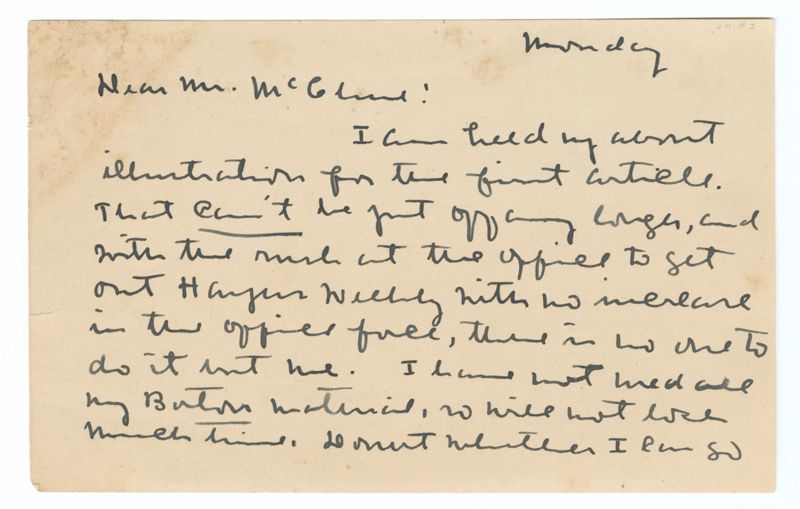 Monday
Dear Mr. McClure:
I am held up about
illustrations for the first article.
That can't be put off any longer, and
with the rush at the office to get
out Harpers Weekly with no increase
in the office force, there is no one to
do it but me. I have not used all
my Boston material, so will not lose
much time. Doubt whether I can go